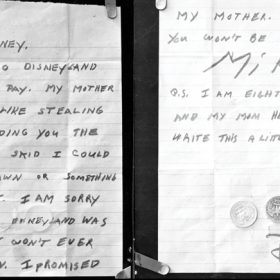 NEY.
O DISNEYLAND
PAY. MY MOTHER
LIKE STEALING
DING YOU THE
SKID I COULD
AWN OR SOMETHING
I AM SORRY
DINEYLAND WAS
WON'T EVER
N. I PROMISED
MY MOTHER.
YOU WON'T BE
Mi
P.S. I AM EIGHT
AND MY MOM HE
WRITE THIS A LITT